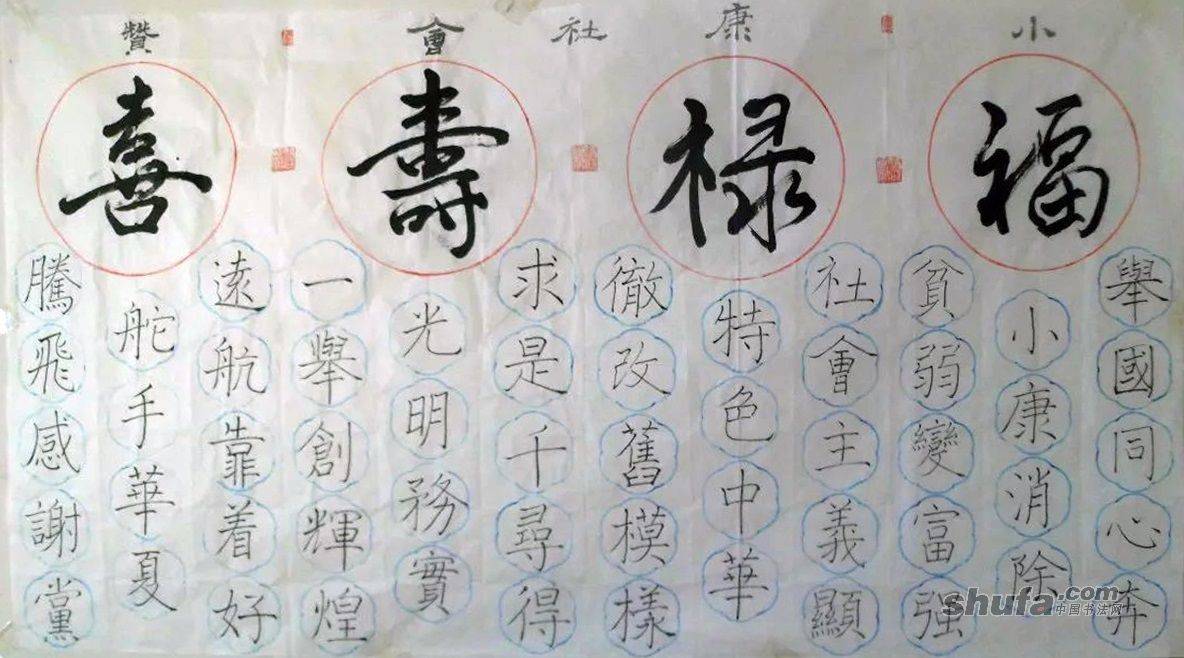 小康社會贊
福祿壽喜
舉國同心奔
小康消除
貧弱變富强
社會主義顯
特色中華
徹改舊模樣
求是千尋得
光明務實
一舉創輝煌
遠航靠着好
舵手華夏
騰飛感謝黨
shufa.com
中国书法网